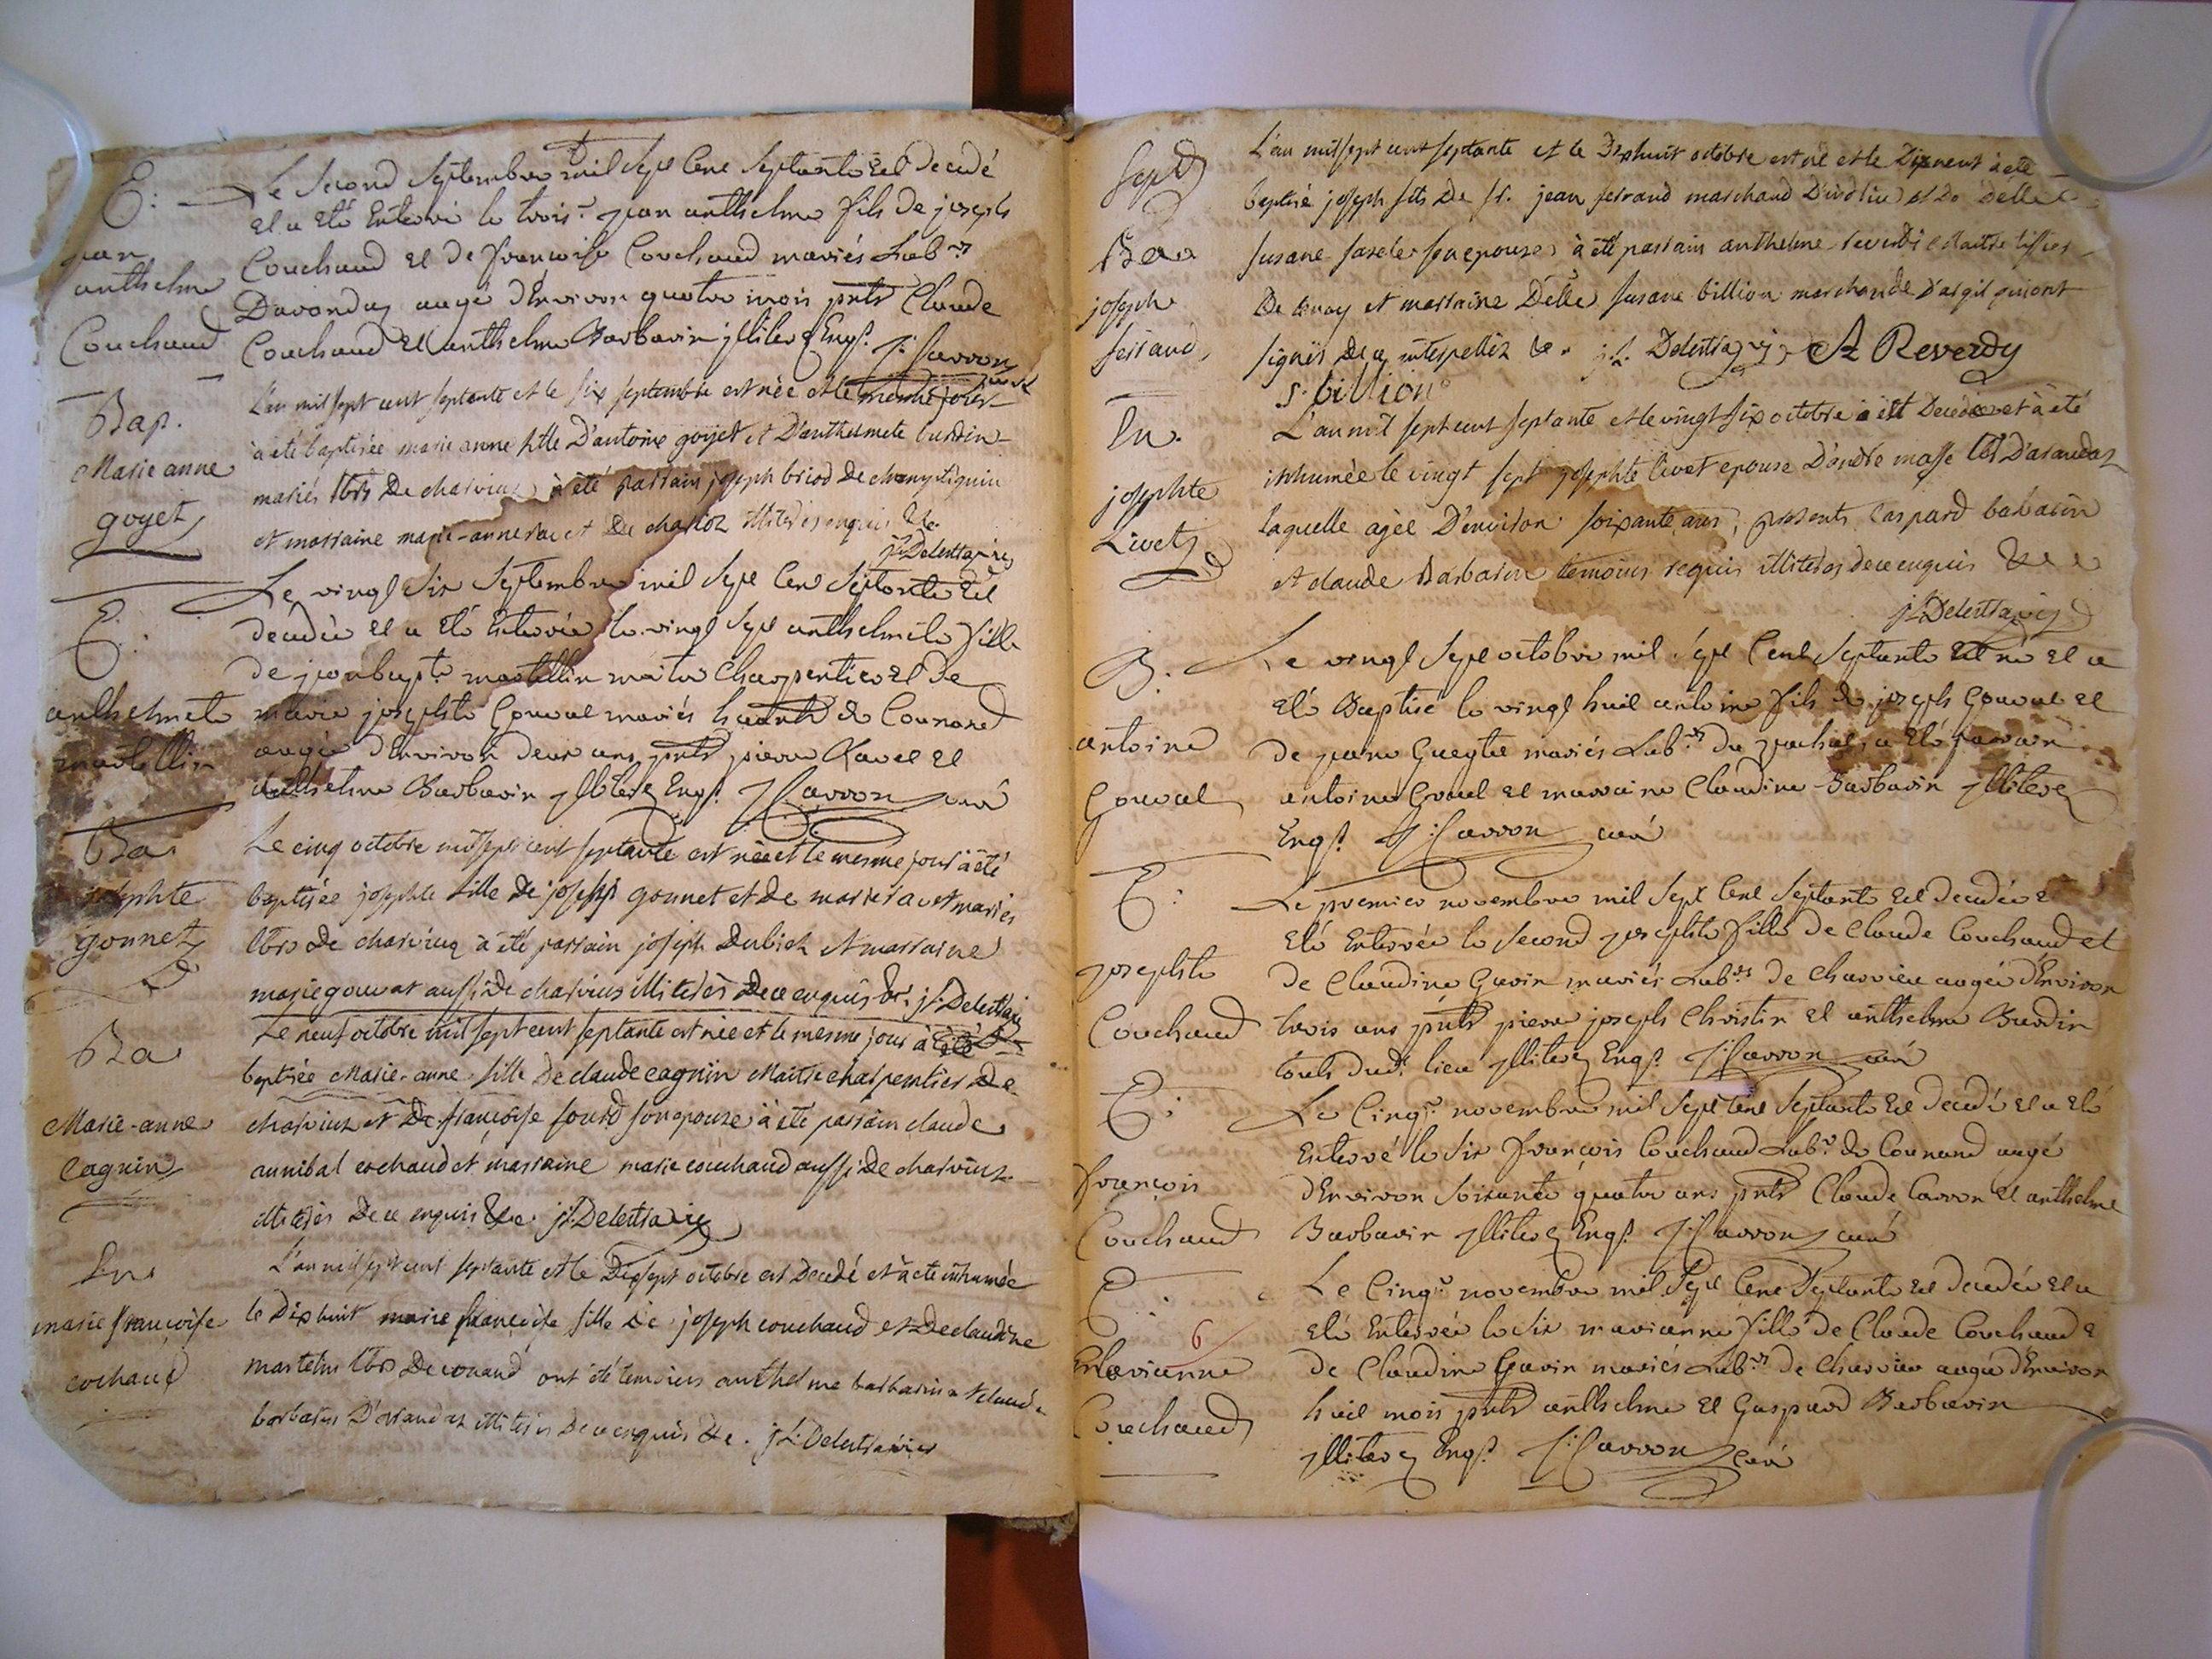 E:
jean
anthelme
Couchaud
Le second septembre mil sept cent septante est decedé
et a été enterré le trois.e jean anthelme fils de joseph
Couchaud et de françoise Couchaud mariés Lab.rs
Darandas augé d'Environ quatre mois pnts Claude
Couchaud et anthelme Barbarin jlliterés Enq.s J: Carron
curé
Bap.
Marie anne
goyet
L'an mil sept cent septante et le six septembre est née et le mesme jour
à été baptisée marie anne fille D'antoine goyet et D'anthelmete burdin
mariés lbrs De charvieux à été parrain joseph briod De
et marraine marie-anne ravet De illiterés enquis &c.
j: Delestra
E:
anthelmete
martellin
Le vingt six septembre mil sept cent septante est
decedée et a été enterrée le vingt sept anthelmete fille
de jean bapt.e martellin maitre charpentier et de
marie josephte Gouvat mariés de Counand
augée d'Environ deux ans pnts pierre Ravet et
anthelme Barbarin jlliterés Enq.s J: Carron curé
Ba
josephte
gonnet
Le cinq octobre mil sept cent septante est née et le mesme jour à été
baptisée josephte fille de joseph gonnet et De marie ravet mariés
lbrs de charvieux à été parrain joseph dubich et marraine
marie gouvat aussi De charvieux illiterés de ce enquis &c. j: Delestra
Ba
Marie-anne
Cagnin
Le neuf octobre mil sept cent septante est née et le mesme jour à été
baptisée Marie-anne fille De claude cagnin Maitre charpentier De
charvieux et De françoise sourd son epouse à été parrain claude
annibal cochaud et marraine marie couchaud aussi de charvieux
illiterés De ce enquis &c. j: Delestra
En.
marie françoise
cochaud
L'an mil sept cent septante et le Dix sept octobre est Decedé et à été inhumée
le Dix huit marie françoise fille De joseph couchaud et De claudine
martelin lbrs De conand ont été temoins anthelme barbarin et claude
barbarin D'arandas illiterés De ce enquis &c. j: Delestra
Sept
Ba
joseph
ferrand
L'an mil sept cent septante et le Dix huit octobre est né et le Dix neuf à été
baptisé joseph fils De sr. jean ferrand marchand Dudit lieu et De Delle
susane son epouse à été parrain anthelme reverdi Maitre
De tenay et marraine Delle susane billion marchande D'argis qui ont
signés De ce interpellés &c. j: Delestra A Reverdy
S. billion
En.
josephte
Livet
L'an mil sept cent septante et le vingt six octobre à été Decedée et à été
inhumée le vingt sept josephte livet epouse D'andré masse lbr D'arandas
laquelle agée D'environ soixante ans, presents Caspard babarin
et claude Barbarin temoins requis illiterés de ce enquis &c
j: Delestra
B.
antoine
Gouvat
Le vingt sept octobre mil sept Cent septante est né et a
été Baptisé le vingt huit antoine fils de joseph Gouvat et
de jeane mariés Lab.rs du a été parrain
antoine Gouvat et marraine Claudine Barbarin jlliterés
Enq.s J: Carron curé
E:
josephte
Couchaud
Le premier novembre mil sept Cent septante est decedée et
été Enterrée le second josephte fille de Claude Couchaud et
de Claudine Gavin mariés Lab.rs de Charvieu augée d'Environ
trois ans pnts pierre joseph Christin et anthelme Burdin
touts dud.t lieu jlliterés Enq.s J: Carron curé
E:
françois
Couchaud
Le Cinq.e novembre mil sept Cent septante est decedé et a été
Enterré le six françois Couchaud Lab.r de Counand augé
d'Environ soixante quatre ans pnts Claude Carron et anthelme
Barbarin jlliterés Enq.s J: Carron curé
E:
6
Marianne
Couchaud
Le Cinq.e novembre mil sept Cent septante est decedée et a
été Enterrée le six marianne fille de Claude Couchaud e
de Claudine Gavin mariés Lab.rs de Charvieu augée d'Environ
huit mois pnts anthelme et Gaspard Barbarin
jlliterés Enq.s J: Carron curé